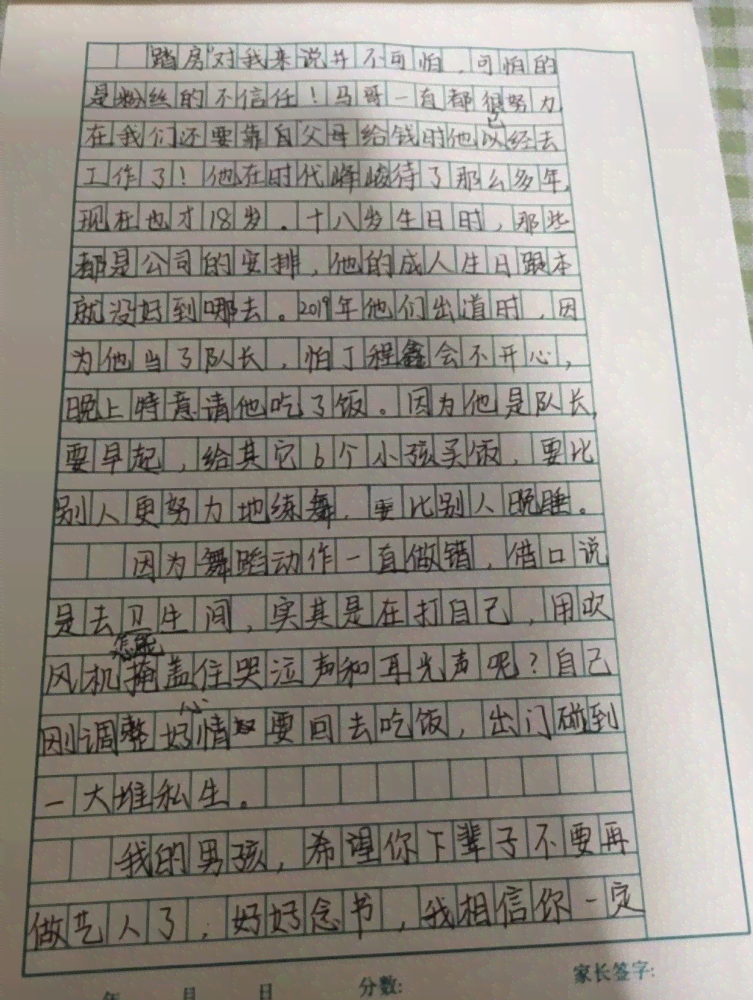 “踏房”对我来说并不可怕，可怕的
是粉丝的不信任！马哥一直都很努力
在我们还要靠自父母给钱时他已经去
工作了！他在时代峰峻待了那么多年，
现在也才18岁。十八岁生日时，那些
都是公司的安排，他的成人生日跟本
就没好到哪去。2019年他们出道时，因
为他当了队长，怕丁程鑫会不开心，
晚上特意请他吃了饭。因为他是队长，
要早起，给其它6个小孩买饭，要比
别人更努力地练舞，要比别人晚睡。
因为舞蹈动作一直做错，借口说
是去卫生间，实其是在打自己，用吹
风机怎能掩盖住哭泣声和耳光声呢？自己
刚调整好心情要回去吃饭，出门碰到
一大堆私生。
我的男孩，希望你下辈子不要再
做艺人了，好好念书，我相信你一定
年 月 日 分数: 家长签字: